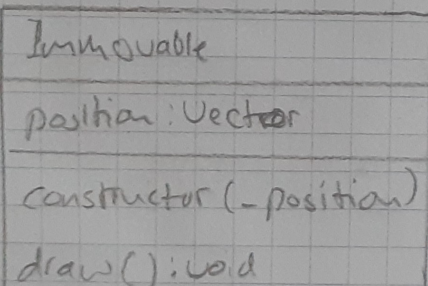 Immovable
position : Vector
constructor (_position)
draw() : void